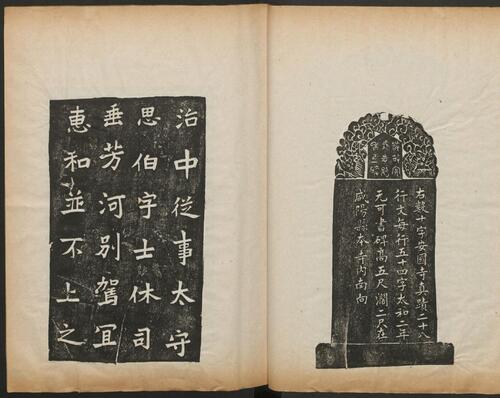 右數十字安國寺真蹟二十八
行文每行五十四字太和二年
元可書碑高五尺濶二尺在
咸陽縣本寺內向
治中從事太守
思伯字士休司
垂芳河別駕冝
惠和並不上之